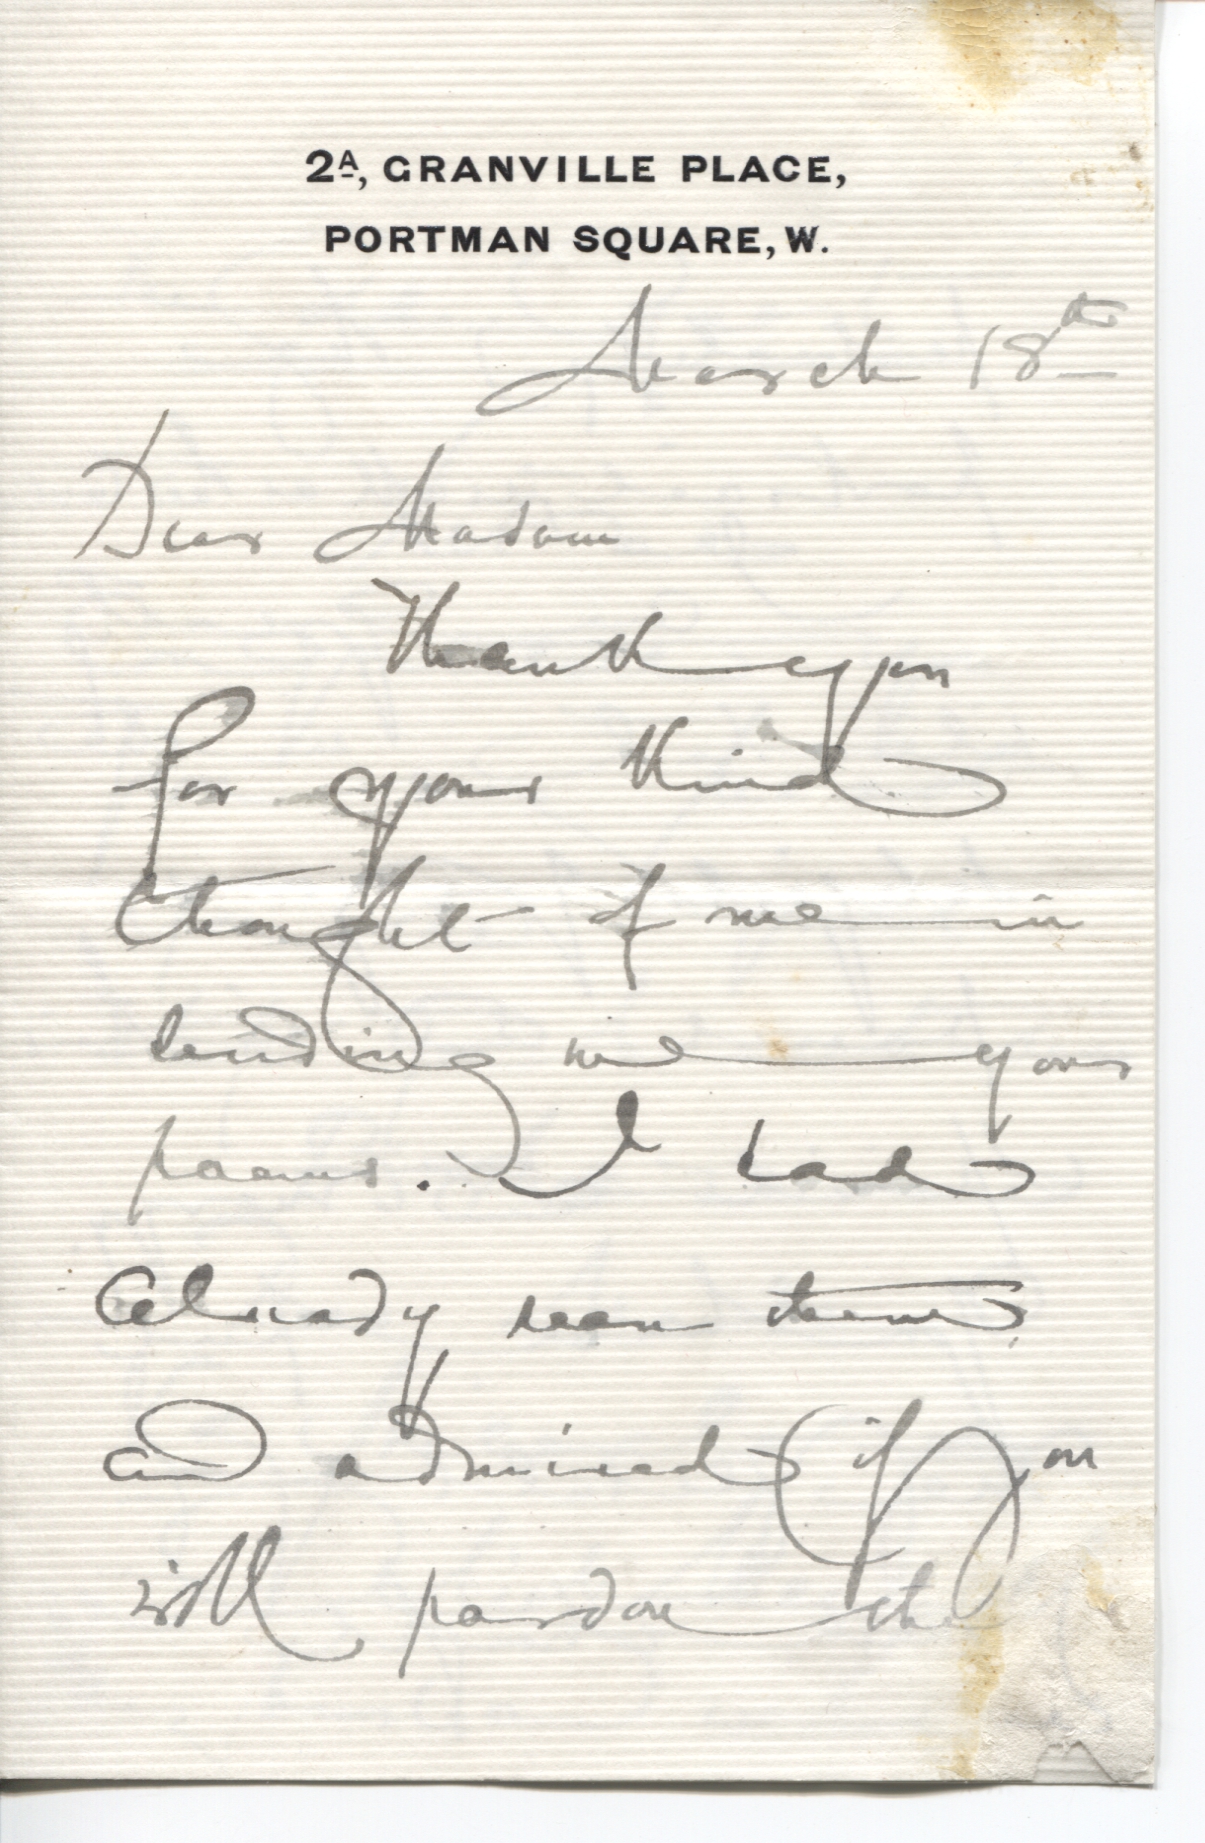 2A, GRANVILLE PLACE,
PORTMAN SQUARE, W.
March 18th
Dear Madam
Thank you
for your kind
thought of me in
sending me your
poems. I had
already seen them
and admired if you
will pardon the